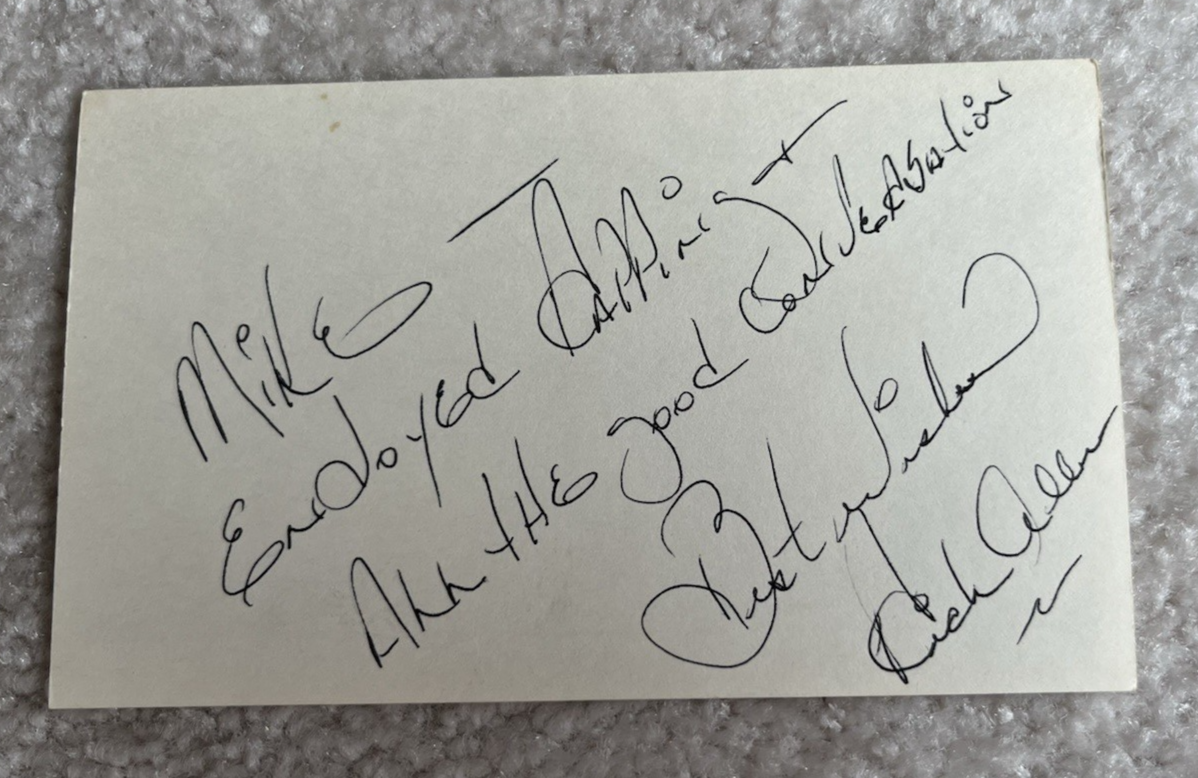 Mike
Enjoyed Rapping
All the good conversation
Best wishes
Dick Allen